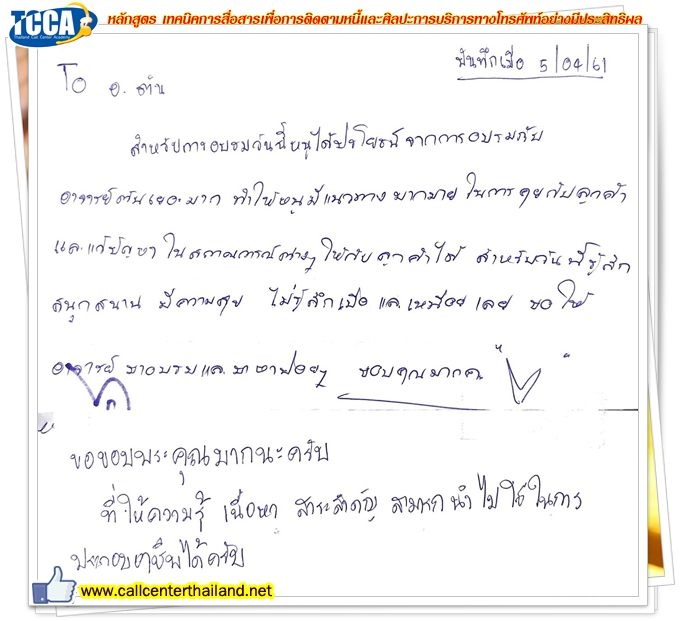 TCCA
Thailand Call Center Academy
หลักสูตร เทคนิคการสื่อสารเพื่อการติดตามหนี้และศิลปะการบริการทางโทรศัพท์อย่างมีประสิทธิผล
บันทึกเมื่อ 5/04/61
To อ. ต้น
สำหรับการอบรมวันนี้หนูได้ประโยชน์จากการอบรมกับ
อาจารย์ต้นเยอะมาก ทำให้หนูมีแนวทางมากมาย ในการคุยกับลูกค้า
และแก้ปัญหา ในสถานการณ์ต่างๆ ให้กับลูกค้าได้ สำหรับวันนี้รู้สึก
สนุกสนาน มีความสุข ไม่รู้สึกเบื่อ และเหนื่อย เลย ขอให้
อาจารย์ มาอบรมและมาหาบ่อยๆ ขอบคุณมากค่ะ
ขอขอบพระคุณมากนะครับ
ที่ให้ความรู้ เนื้อหา สาระสำคัญ สามารถนำไปใช้ในการ
ประกอบอาชีพได้ครับ
www.callcenterthailand.net